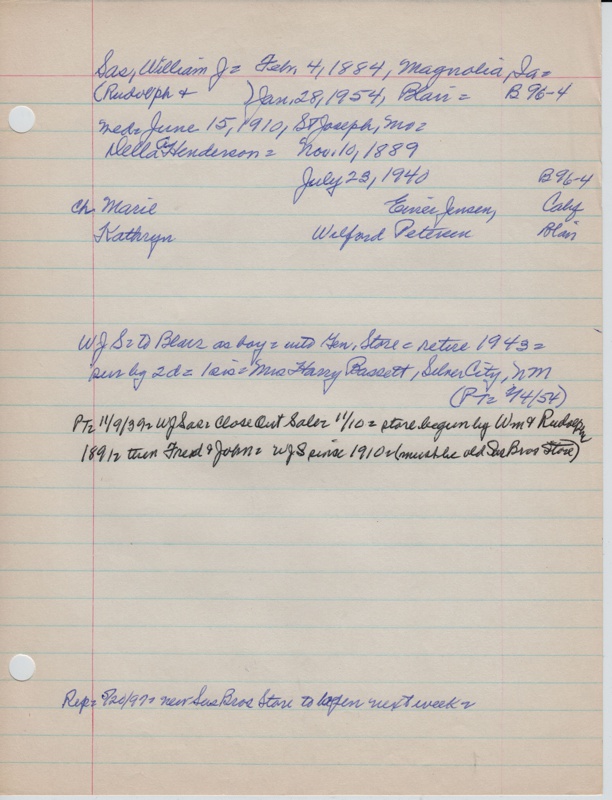 Sas, William J = Feb. 4, 1884, Magnolia, Ia =
(Rudolph + ) Jan. 28, 1954, Blair = B 96-4
med = June 15, 1910, St Joseph, Mo =
Della Henderson = Nov. 10, 1889
July 23, 1940 B 96-4
ch Marie Einer Jensen, Calif
Kathryn Wilford Petersen Blair
WJS = to Blair as boy = into Gen. Store = retire 1943 =
sur by 2d = 1 sis = Mrs Harry Bassett, Silver City, NM
(PT = 2/4/54)
PT = 11/9/39 = WJ Sas = Close Out Sale = 11/10 = store begun by Wm & Rudolph
1891 = then Fred & John = WJS since 1910 = (must be old Sas Bros Store)
Rep = /20/97 = new Sas Bros Store to open next week =